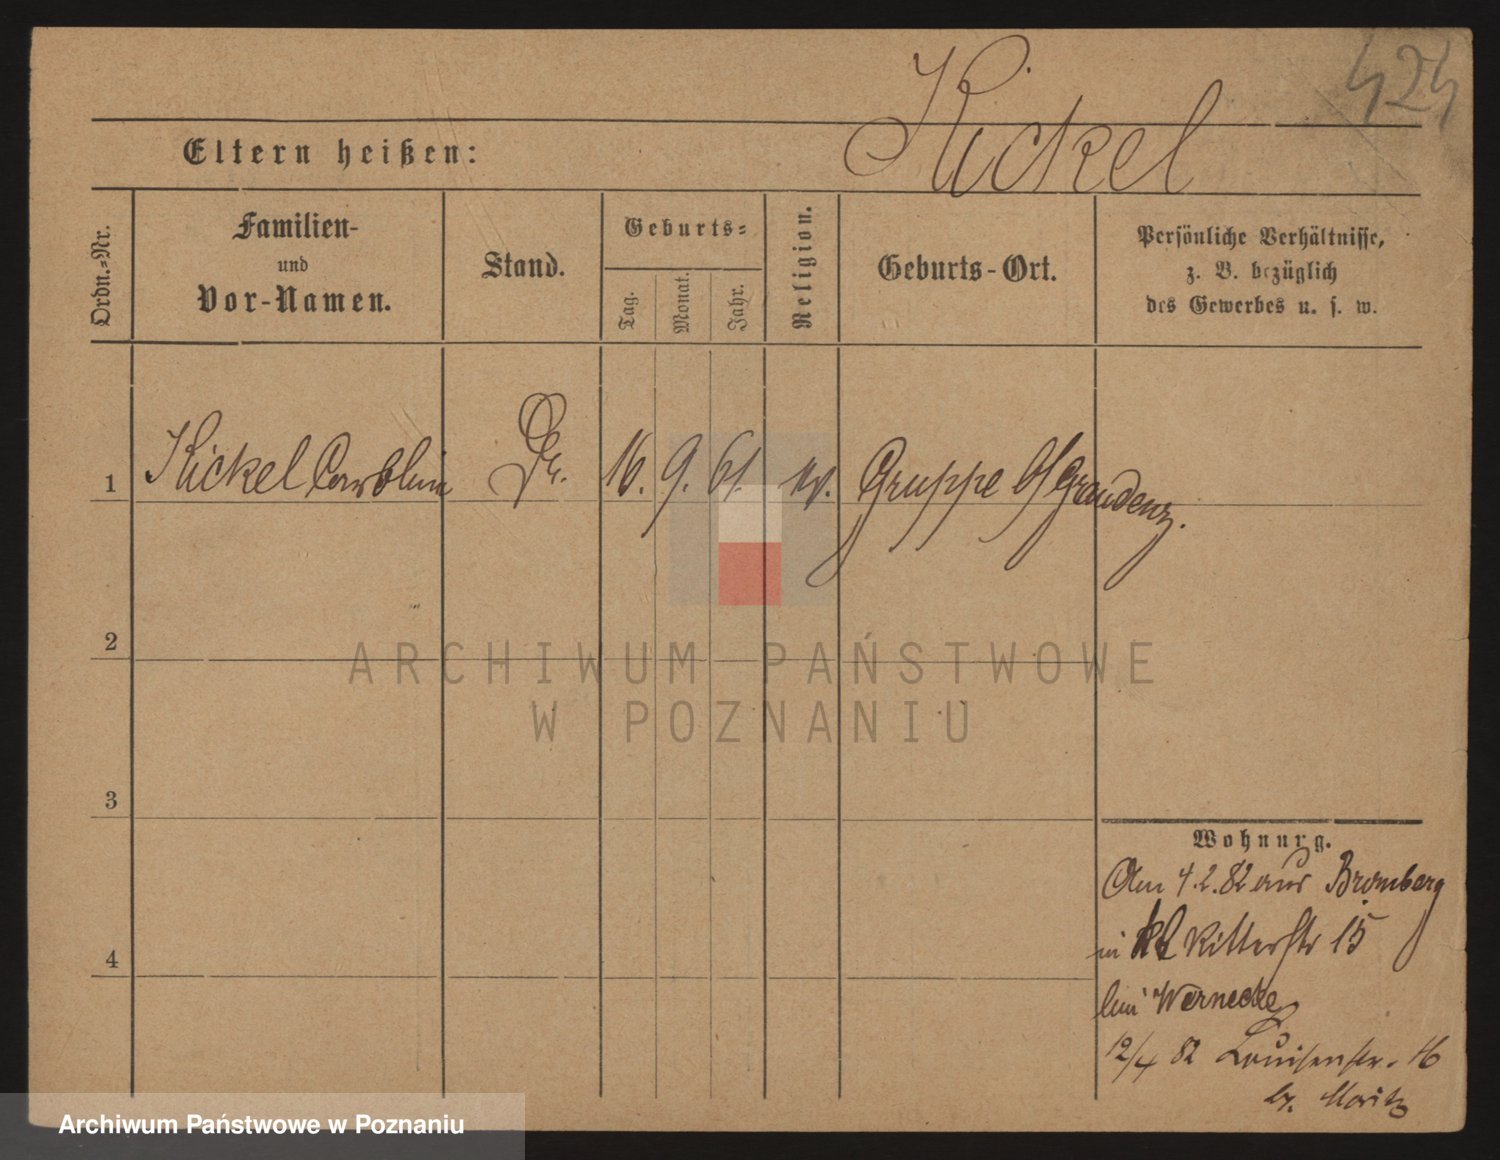 424
Kickel
Eltern heißen:
Ordn.-Nr.
Familien-
und
Vor-Namen.
Stand.
Geburts-
Tag.
Monat.
Jahr.
Religion.
Geburts-Ort.
Persönliche Verhältnisse,
z. B. bezüglich
des Gewerbes u. s. w.
1 Kickel Caroline 16. 9. 61. ev. Gruppe Graudenz.
2
3
4
Wohnung.
Am 4.2.82 aus Bromberg
in kl Ritterstr 15
bei Wernecke
12/4 82 Louisenstr. 16
b. Moritz
ARCHIWUM PAŃSTWOWE
W POZNANIU
Archiwum Państwowe w Poznaniu